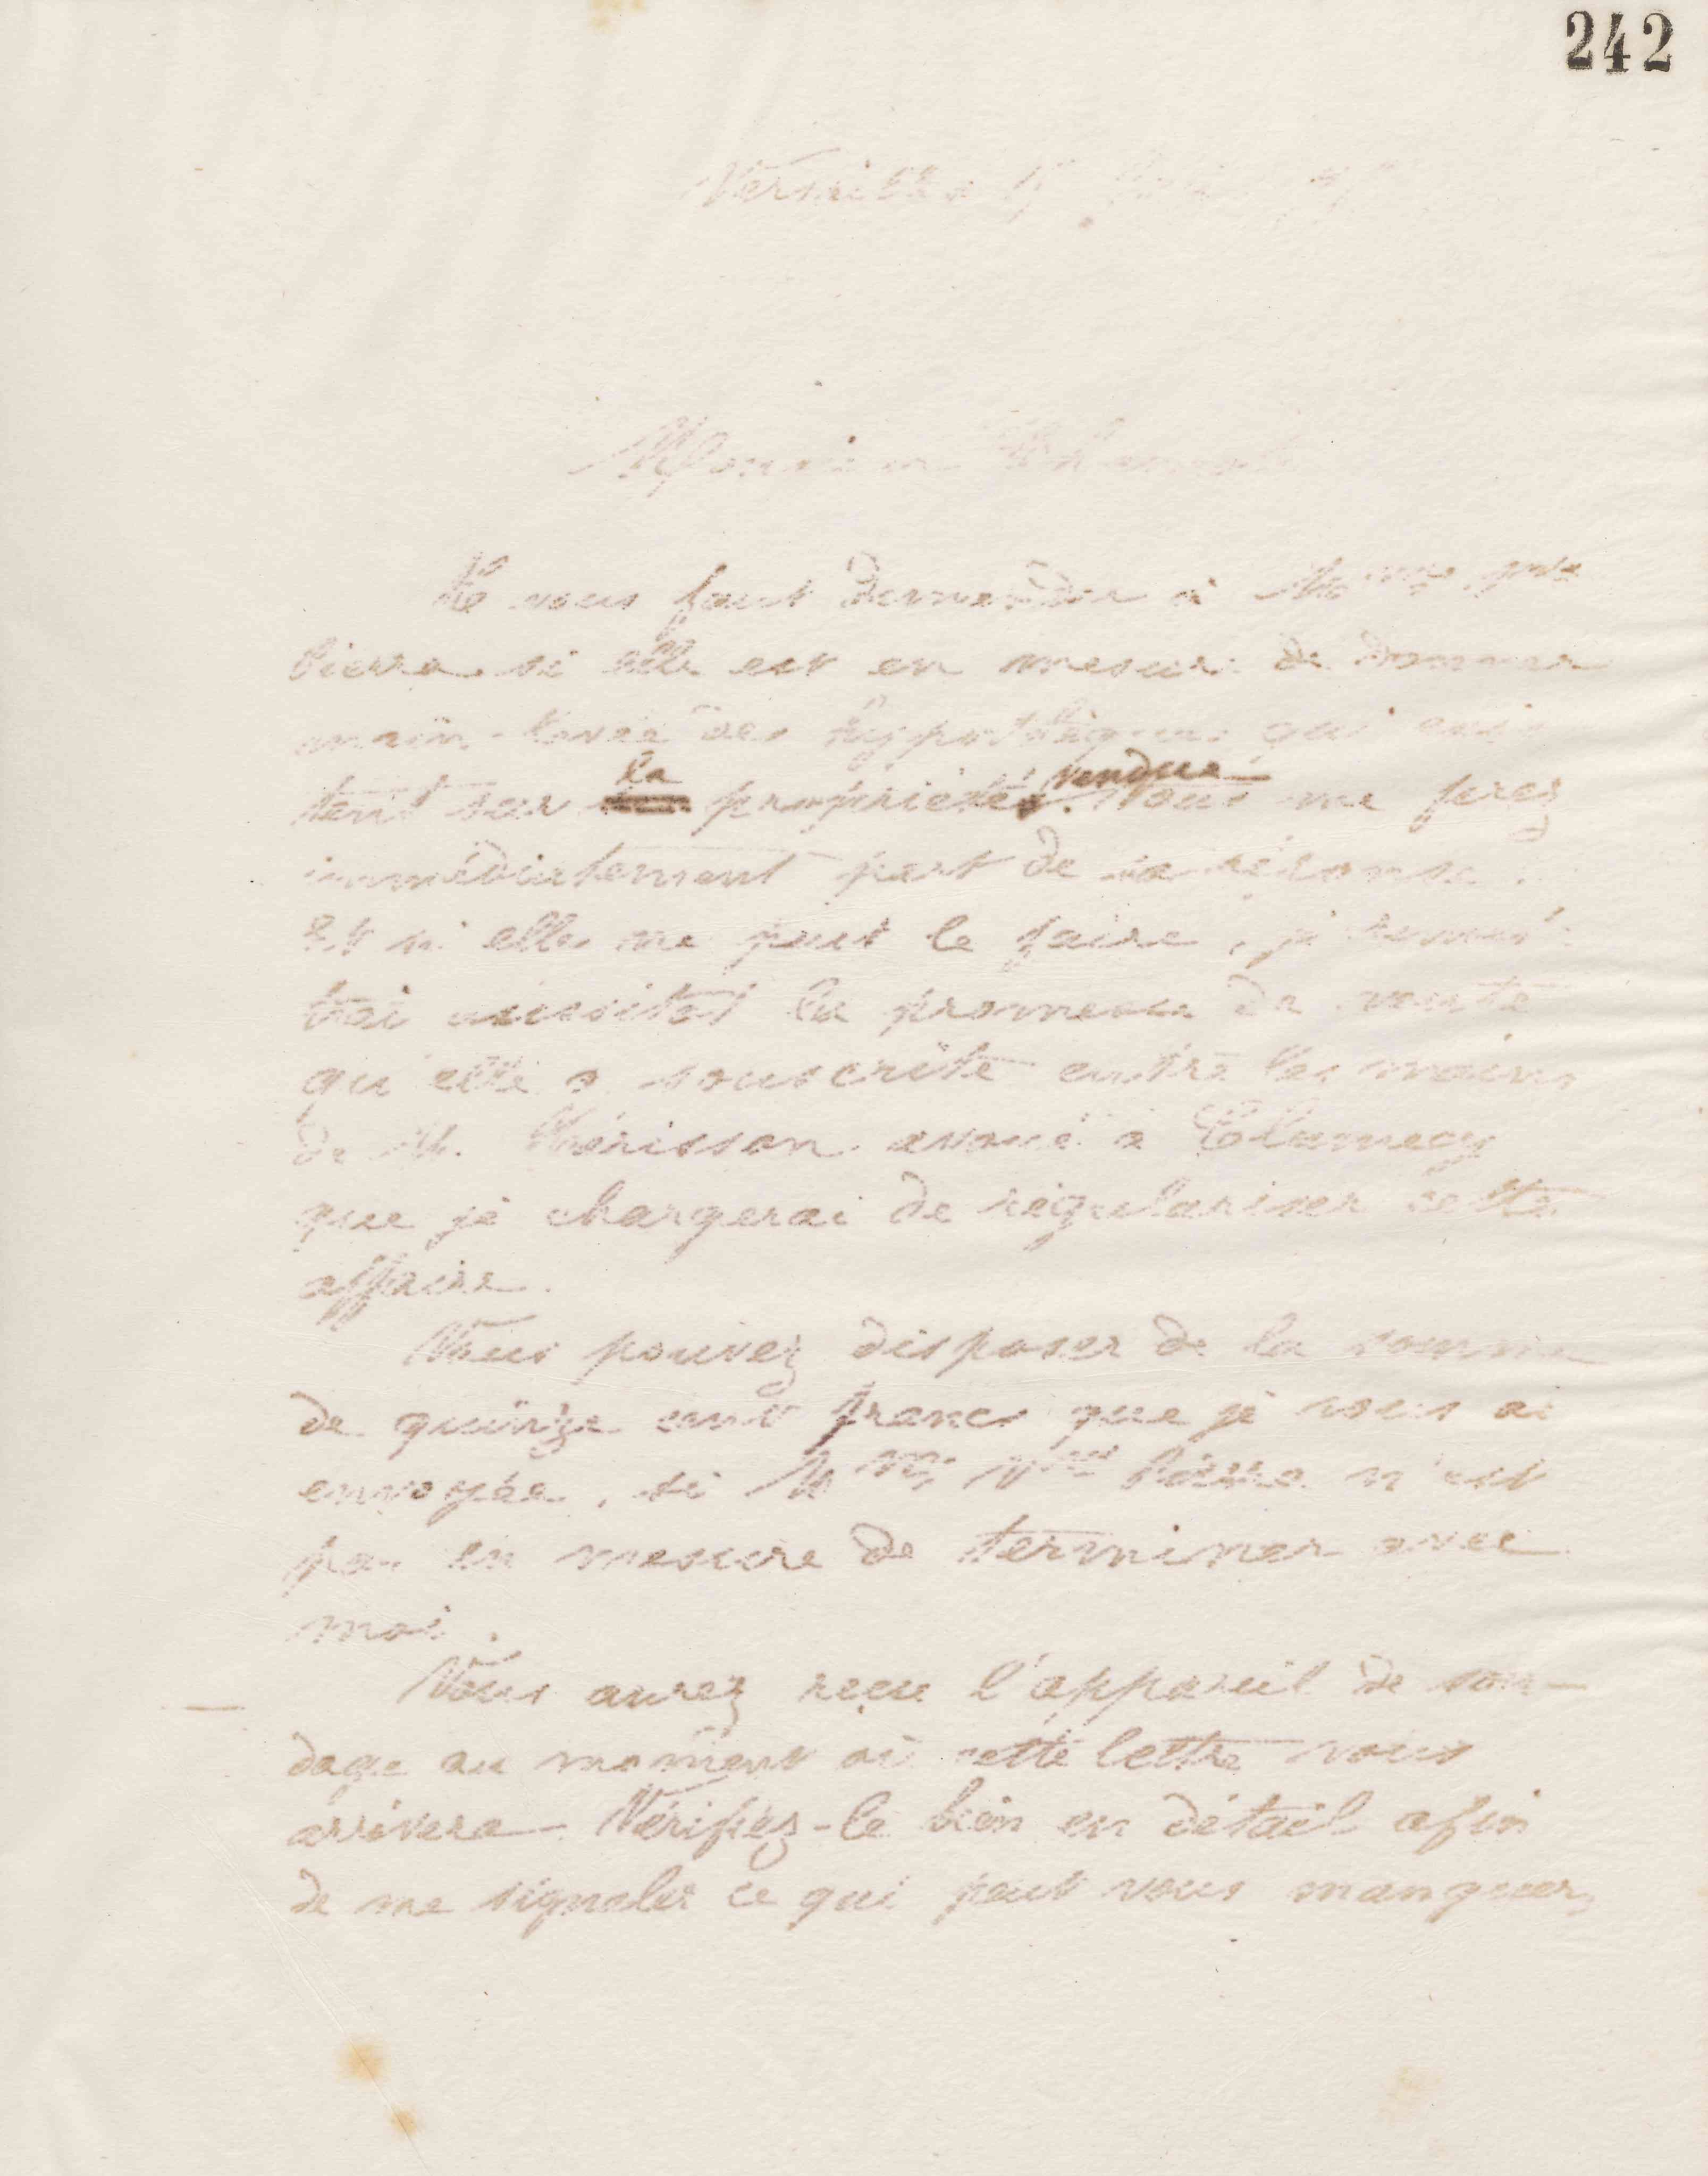 242
Versailles 15
Monsieur
Il vous faut demander à Madame Vve
Pierre si elle est en mesure de donner
main-levée des hypothèques qui exis-
tent sur la propriété vendue. Vous me ferez
immédiatement part de sa réponse.
Et si elle ne peut le faire, je remet-
trai aussitôt la promesse de vente
qu'elle a souscrite entre les mains
de M. Hérisson avoué à Clamecy
que je chargerai de régulariser cette
affaire.
Vous pouvez disposer de la somme
de quinze cent francs que je vous ai
envoyée, si Mme Vve Pierre n'est
pas en mesure de terminer avec
moi.
Vous aurez reçu l'appareil de son-
dage au moment où cette lettre vous
arrivera. Vérifiez-le bien en détail afin
de me signaler ce qui peut vous manquer,